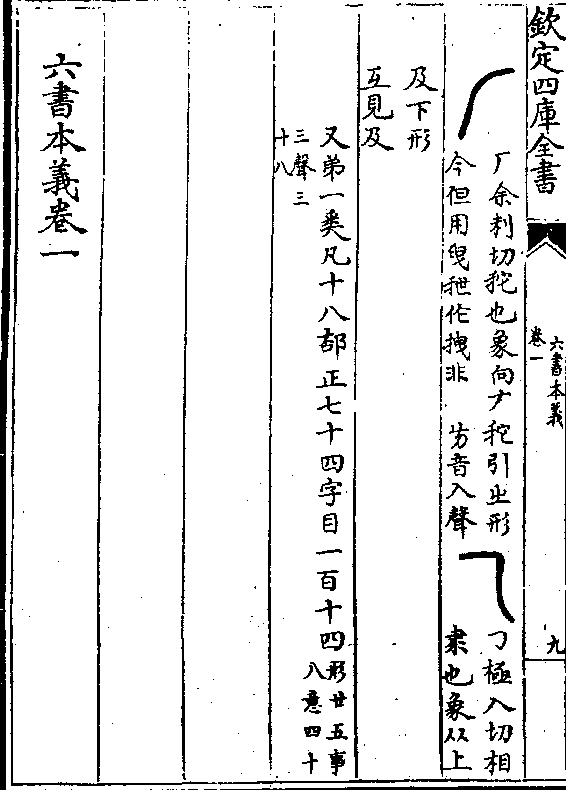 欽定四庫全書
六書本義
卷一
九
厂余利切拕也象向𠂇拕引之形
今但用曳拽作拽非 㫄音入聲
㇆極入切相
隶也象从上
及下形
互見及
又弟一類凡十八部正七十四字目一百十四形廿五事
八意四十
三聲三
十八
六書本義卷一